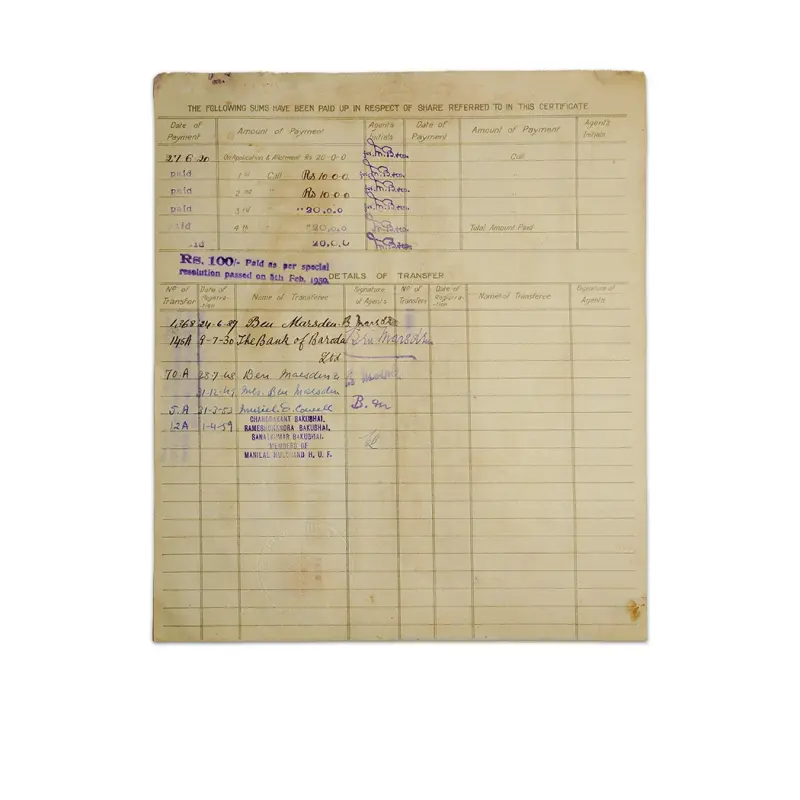 THE FOLLOWING SUMS HAVE BEEN PAID UP IN RESPECT OF SHARE REFERRED TO IN THIS CERTIFICATE
Date of Payment Amount of Payment Agent's Initials Date of Payment Amount of Payment Agent's Initials
27-6-20 On Application & Allotment Rs 20-0-0 Call
paid 1st Call Rs 10-0-0 "
paid 2nd " Rs 10-0-0 "
paid 3rd " "20.0.0 "
paid 4th " "20.0.0 Total Amount Paid
20.0.0
Rs. 100/- Paid as per special
resolution passed on 5th Feb. 1930.
DETAILS OF TRANSFER
No of Transfer Date of Registra-tion Name of Transferee Signature of Agents No of Transfers Date of Registra-tion Name of Transferee Signature of Agents
1368 24-6-27 Ben Marsden B Marsden
145A 9-7-30 The Bank of Baroda Ben Marsden
Ltd
70-A 28-7-48 Ben Marsden
31-12-49 Mrs. Ben Marsden
5.A 31-3-53 Muriel. D. Cowell B. M
12A 1-4-59 CHANDRAKANT BAKUBHAI,
RAMESHCHANDRA BAKUBHAI,
SANATKUMAR BAKUBHAI.
MEMBERS OF
MANILAL MULCHAND H. U. F.